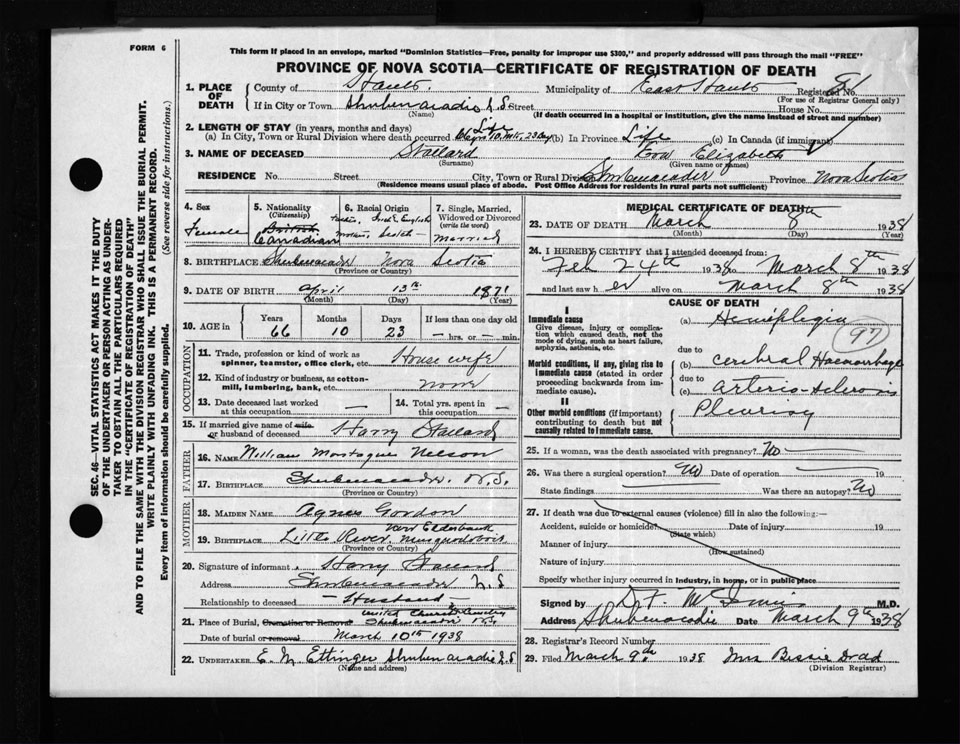 FORM 6
This form if placed in an envelope, marked "Dominion Statistics—Free, penalty for improper use $300," and properly addressed will pass through the mail "FREE"
PROVINCE OF NOVA SCOTIA—CERTIFICATE OF REGISTRATION OF DEATH
1. PLACE OF DEATH
County of Hants. Municipality of East Hants Registered No.
(For use of Registrar General only)
If in City or Town Shubenacadie N.S. Street House No.
(Name) (If death occurred in a hospital or institution, give the name instead of street and number)
2. LENGTH OF STAY (in years, months and days)
(a) In City, Town or Rural Division where death occurred Life (b) In Province Life (c) In Canada (if immigrant)
3. NAME OF DECEASED Stallard Elizabeth
(Surname) (Given name or names)
RESIDENCE No. Street City, Town or Rural Division Shubenacadie Province Nova Scotia
(Residence means usual place of abode. Post Office Address for residents in rural parts not sufficient)
4. Sex Female
5. Nationality (Citizenship) British Canadian
6. Racial Origin Father, Irish & English Mother, Scotch
7. Single, Married, Widowed or Divorced (write the word) Married
8. BIRTHPLACE Shubenacadie Nova Scotia
(Province or Country)
9. DATE OF BIRTH April 13th 1871
(Month) (Day) (Year)
10. AGE in Years 66 Months 10 Days 23 If less than one day old
hrs. or min.
OCCUPATION
11. Trade, profession or kind of work as spinner, teamster, office clerk, etc. House wife
12. Kind of industry or business, as cotton-mill, lumbering, bank, etc. none
13. Date deceased last worked at this occupation — 14. Total yrs. spent in this occupation —
15. If married give name of wife or husband of deceased Harry Stallard
FATHER
16. NAME William Montague Nelson
17. BIRTHPLACE Shubenacadie N.S.
(Province or Country)
MOTHER
18. MAIDEN NAME Agnes Gordon
19. BIRTHPLACE Little River near Elderbank Musquodoboit
(Province or Country)
20. Signature of informant Harry Stallard
Address Shubenacadie N.S
Relationship to deceased — Husband —
21. Place of Burial, Cremation or Removal United Church Cemetery Shubenacadie N.S.
Date of burial or removal March 10th 1938
22. UNDERTAKER E. M. Ettinger Shubenacadie N.S
(Name and address)
MEDICAL CERTIFICATE OF DEATH
23. DATE OF DEATH March 8th 1938
(Month) (Day) (Year)
24. I HEREBY CERTIFY that I attended deceased from:
Feb 24th 1938 to March 8th 1938
and last saw her alive on March 8th 1938
CAUSE OF DEATH
I
Immediate cause
Give disease, injury or complication which caused death, not the mode of dying, such as heart failure, asphyxia, asthenia, etc.
(a) Hemiplegia 97
due to
Morbid conditions, if any, giving rise to immediate cause (stated in order proceeding backwards from immediate cause).
(b) Cerebral Haemorrhage
due to
(c) Arterio-sclerosis
II
Other morbid conditions (if important) contributing to death but not causally related to immediate cause.
Pleurisy
25. If a woman, was the death associated with pregnancy? No
26. Was there a surgical operation? No Date of operation 19
State findings Was there an autopsy? No
27. If death was due to external causes (violence) fill in also the following:—
Accident, suicide or homicide? Date of injury 19
(State which)
Manner of injury
(How sustained)
Nature of injury
Specify whether injury occurred in Industry, in home, or in public place
Signed by D. F. McInnis M.D.
Address Shubenacadie Date March 9th 1938
28. Registrar's Record Number
29. Filed March 9th 1938 Mrs Bessie
(Division Registrar)
SEC. 46—VITAL STATISTICS ACT MAKES IT THE DUTY
OF THE UNDERTAKER OR PERSON ACTING AS UNDER-
TAKER TO OBTAIN ALL THE PARTICULARS REQUIRED
IN THE "CERTIFICATE OF REGISTRATION OF DEATH"
AND TO FILE THE SAME WITH THE DIVISION REGISTRAR WHO SHALL ISSUE THE BURIAL PERMIT.
WRITE PLAINLY WITH UNFADING INK. THIS IS A PERMANENT RECORD.
Every item of information should be carefully supplied. (See reverse side for instructions.)